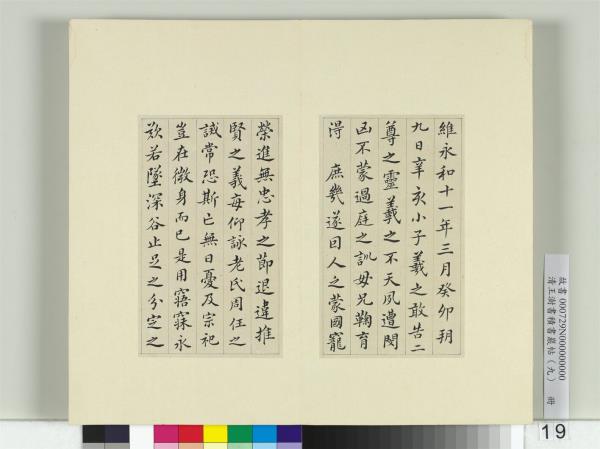 維永和十一年三月癸卯朔
九日辛亥小子羲之敢告二
尊之靈羲之不天夙遭閔
凶不蒙過庭之訓母兄鞠育
得 庶幾遂因人之蒙國寵
榮進無忠孝之節退違推
賢之義每仰詠老氏周任之
誡常恐斯亡無日憂及宗祀
豈在微身而已是用寤寐永
歎若墜深谷止足之分定之
故書000729N000000000
清王澍書積書巖帖(九) 冊
19